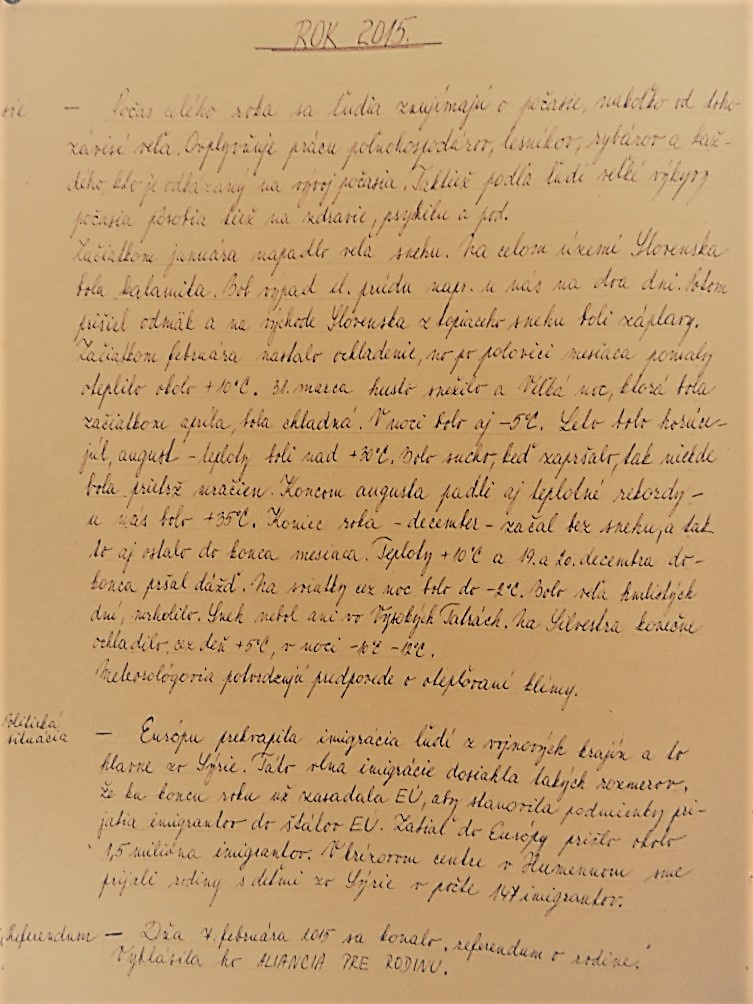 ROK 2015.
— Počas celého roka sa ľudia zaujímajú o počasie, nakoľko od toho
závisí veľa. Ovplyvňuje prácu poľnohospodárov, lesníkov, rybárov a kaž-
dého, kto je odkázaný na vývoj počasia. Taktiež podľa ľudí veľké výkyvy
počasia pôsobia tiež na zdravie, psychiku a pod.
Začiatkom januára napadlo veľa snehu. Na celom území Slovenska
bola kalamita. Bol výpad el. prúdu napr. u nás na dva dni. Potom
prišiel odmäk a na východe Slovenska z topiaceho snehu boli záplavy.
Začiatkom februára nastalo ochladenie, no po polovici mesiaca pomaly
oteplilo okolo +10°C. 31. marca husto snežilo a Veľká noc, ktorá bola
začiatkom apríla, bola chladná. V noci bolo aj -5°C. Leto bolo horúce -
júl, august - teploty boli nad +30°C. Bolo sucho, keď zapršalo, tak niekde
bola prietrž mračien. Koncom augusta padli aj teplotné rekordy -
u nás bolo +35°C. Koniec roka - december - začal bez snehu, a tak
to aj ostalo do konca mesiaca. Teploty +10°C a 19. a 20. decembra do-
konca pršal dážď. Na sviatky cez noc bolo do -2°C. Bolo veľa hmlistých
dní, mrholilo. Sneh nebol ani vo Vysokých Tatrách. Na Silvestra konečne
ochladilo, cez deň +5°C, v noci -10°C -12°C.
Meteorológovia potvrdzujú predpovede o otepľovaní klímy.
Politická
situácia — Európu prekvapila imigrácia ľudí z vojnových krajín a to
hlavne zo Sýrie. Táto vlna imigrácie dosiahla takých rozmerov,
že ku koncu roku už zasadala EÚ, aby stanovila podmienky pri-
jatia imigrantov do štátov EÚ. Zatiaľ do Európy prišlo okolo
1,5 milióna imigrantov. V krízovom centre v Humennom sme
prijali rodiny s deťmi zo Sýrie v počte 147 imigrantov.
Referendum — Dňa 7. februára 2015 sa konalo „referendum o rodine."
Vyhlásila ho ALIANCIA PRE RODINU.